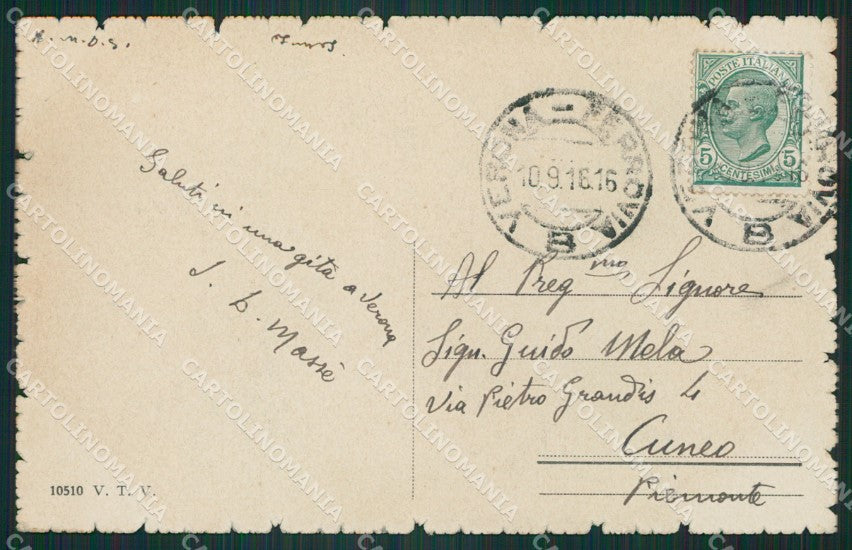 POSTE ITALIANE
5 5
CENTESIMI
VERONA - FERROVIA
10.9.16.16
B
VERONA FERROVIA
B
Saluti in una gita a Verona
Al Preg mo Signore
Sign. Guido Mela
Via Pietro Grandis 4
Cuneo
Piemonte
10510 V. T. V.
CARTOLINOMANIA